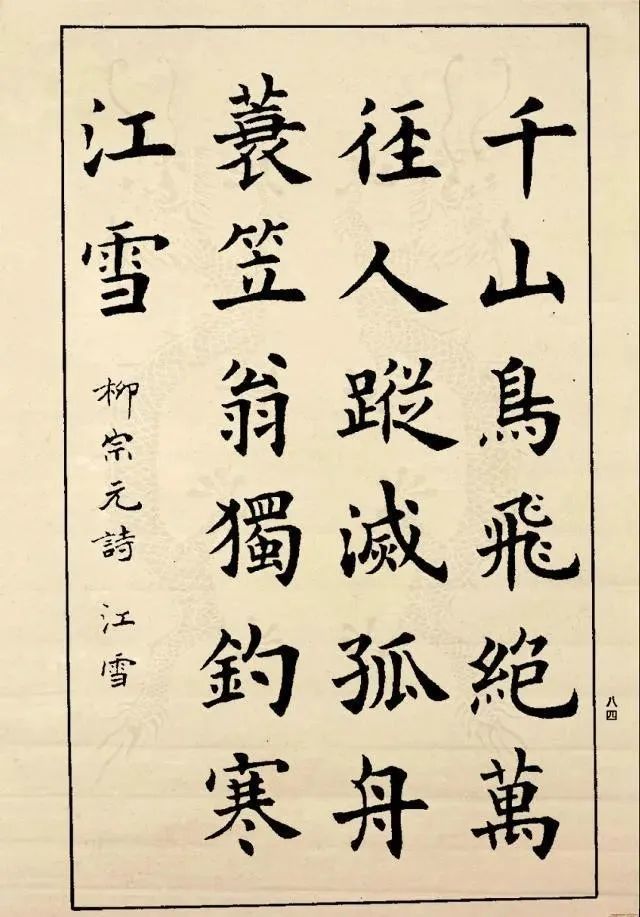 千山鳥飛絶萬
徑人蹤滅孤舟
蓑笠翁獨釣寒
江雪
柳宗元詩 江雪
八四